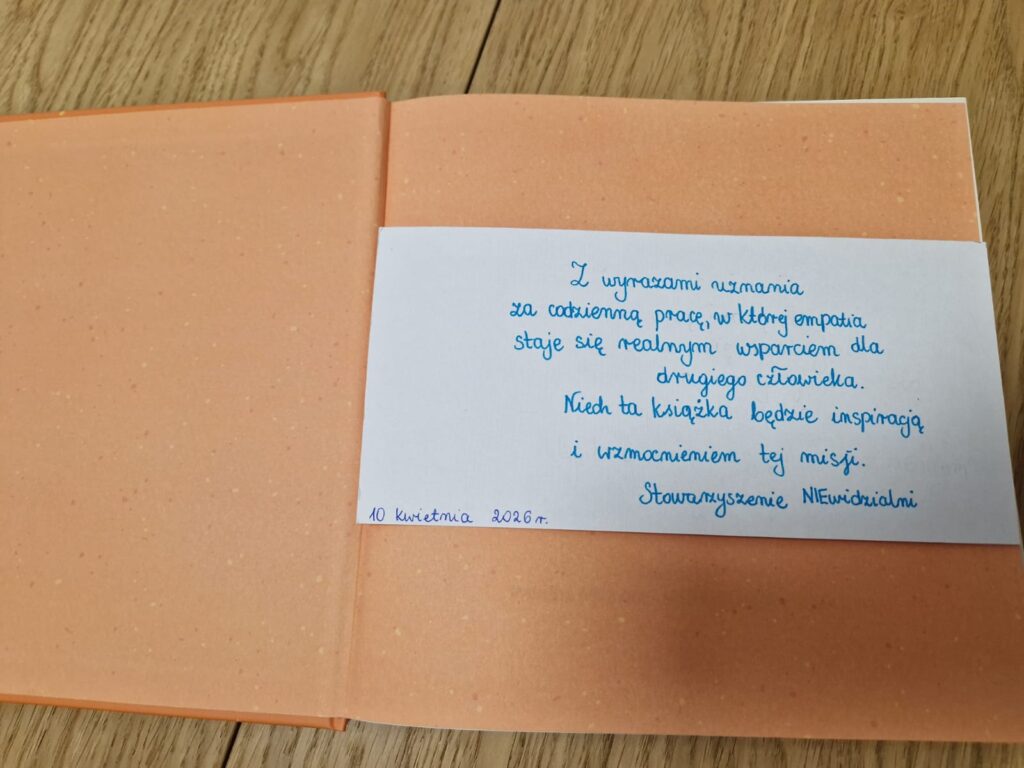 Z wyrazami uznania
za codzienną pracę, w której empatia
staje się realnym wsparciem dla
drugiego człowieka.
Niech ta książka będzie inspiracją
i wzmocnieniem tej misji.
Stowarzyszenie NIEwidzialni
10 kwietnia 2026 r.